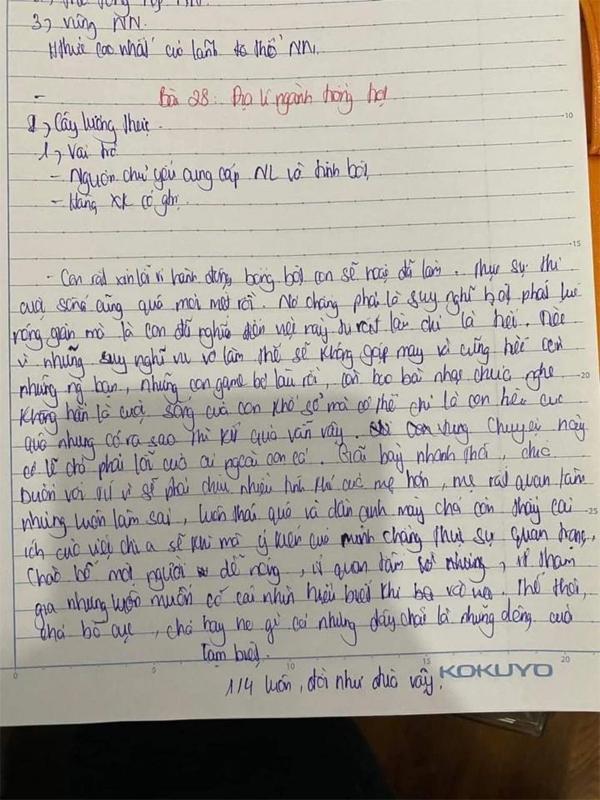 3, vùng NN.
Hthức cao nhất của lãnh thổ NN.
Bài 28: Địa lí ngành trồng trọt
I, Cây lương thực.
1, Vai trò
- Nguồn chủ yếu cung cấp NL và tinh bột,
- Hàng XK có gtrị.
10
15
- Con rất xin lỗi vì hành động bồng bột con sẽ hoặc đã làm. Thực sự thì
cuộc sống cũng quá mỏi mệt rồi. Nó chẳng phải là suy nghĩ bột phát lúc
nóng giận mà là con đã nghĩ đến việc này từ rất lâu chỉ là hơi. Tiếc
vì những suy nghĩ vu vơ làm thế sẽ không gặp may vì cũng hết
những ng bạn, những con game bỏ lâu rồi, còn bao bài nhạc chưa nghe
20
Không hẳn là cuộc sống của con khổ sở mà có thể chỉ là con tiêu cực
quá nhưng có ra sao thì kết quả vẫn vậy. Con chuyện này
có lẽ chả phải lỗi của ai ngoài con cả. Giãi bày nhanh thôi, chúc
buồn với vì sẽ phải chịu nhiều tính khí của mẹ hơn, mẹ rất quan tâm
nhưng luôn làm sai, luôn thái quá và dần anh mày chả còn thấy cái
25
ích của việc chia sẻ khi mà ý kiến của mình chẳng thực sự quan trọng,
Chào bố một người dễ nóng, ít quan tâm nhưng, ít tham
gia nhưng luôn muốn có cái nhìn hiểu biết khi Thế thôi,
chả bố cục, chả hay ho gì cả nhưng đấy chỉ là những dòng cuối
tạm biệt.
0
10
15
20
KOKUYO
1/4 luôn, đời như đùa vậy.